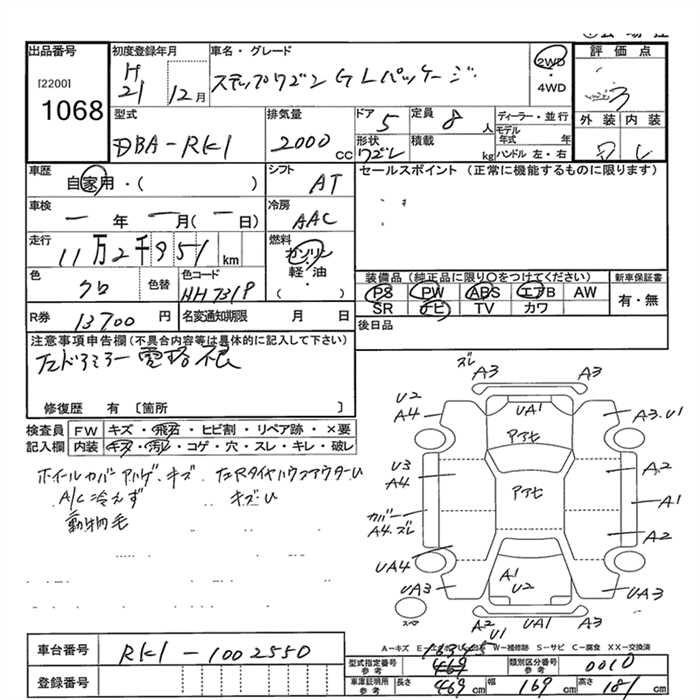 出品番号
[2200]
1068
初度登録年月
H
21 12月
車名・グレード
ステップワゴン GLパッケージ
2WD
4WD
評価点
3
外装 内装
型式
DBA-RK1
排気量
2000 cc
ドア 5
定員 8 人
形状 ワゴン
積載 kg
ディーラー・並行
モデル年式 年
ハンドル 左・右
車歴
自家用・( )
シフト
AT
セールスポイント (正常に機能するものに限ります)
車検
年 月( 日)
冷房
AAC
走行
11万2千951km
燃料
ガソリン
軽・油
( )
色
クロ
色替
色コード
NH731P
装備品(純正品に限り〇をつけてください)
新車保証書
PS PW ABS エアB AW
SR ナビ TV カワ
有・無
R券 13700円
名変通知期限 月 日
後日品
注意事項申告欄(不具合内容等は具体的に記入して下さい)
左ドアミラー電格不良
修復歴 有〔箇所 〕
検査員 FW キズ・飛石・ヒビ割・リペア跡・×要
記入欄 内装 キズ・汚レ・コゲ・穴・スレ・キレ・破レ
ホイールカバー キズ
A/C冷えず
キズU
動物毛
ズレ
A3 A3
U2
A4
UA1
A3.U1
U3
A4
A2
A1
カバー
A4.ズレ
A2
UA4
UA3
A1
U2
UA3
スペア
A2 A3
U1
A-キズ W-補修跡 S-サビ C-腐食 XX-交換済
車台番号
RK1-1002550
登録番号
型式指定番号
参考
類別区分番号
参考
0010
車庫証明用
参考
長さ 469 cm
幅 169 cm
高さ 181 cm